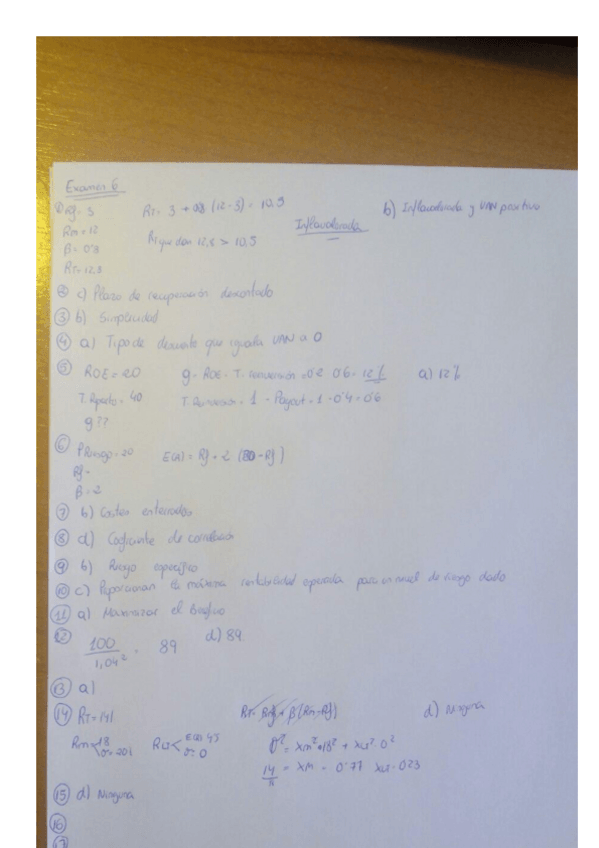 Examen 6
① Rf= 3 RT= 3 + 0'8 (12-3) = 10.5 b) Infravalorada y VAN positivo
Rm = 12 Infravalorada
β= 0'8 RT que dan 12,8 > 10,5
RT= 12,8
② c) Plazo de recuperación descontado
③ b) Simplicidad
④ a) Tipo de descuento que iguala VAN a 0
⑤ ROE = 20 g= ROE · T. = 0'2 · 0'6 = 12% a) 12%
T. Reparto = 40 T. = 1 - Payout = 1 - 0'4 = 0'6
g??
⑥ P Riesgo = 20 E(A) = Rf + 2 ( - Rf )
Rf =
β = 2
⑦ b) Costes enterrados
⑧ d) Coeficiente de correlación
⑨ b) Riesgo específico
⑩ c) Proporcionan la máxima rentabilidad esperada para un nivel de riesgo dado
⑪ a) Maximizar el
⑫ 100 / 1,04² = 89 d) 89
⑬ a)
⑭ RT = RT= Rf + β (Rm - Rf) d) Ninguna
Rm 18 σ²= xm²·18² + 0²
14 = xm = 0'77 0'23
⑮ d) Ninguna
⑯